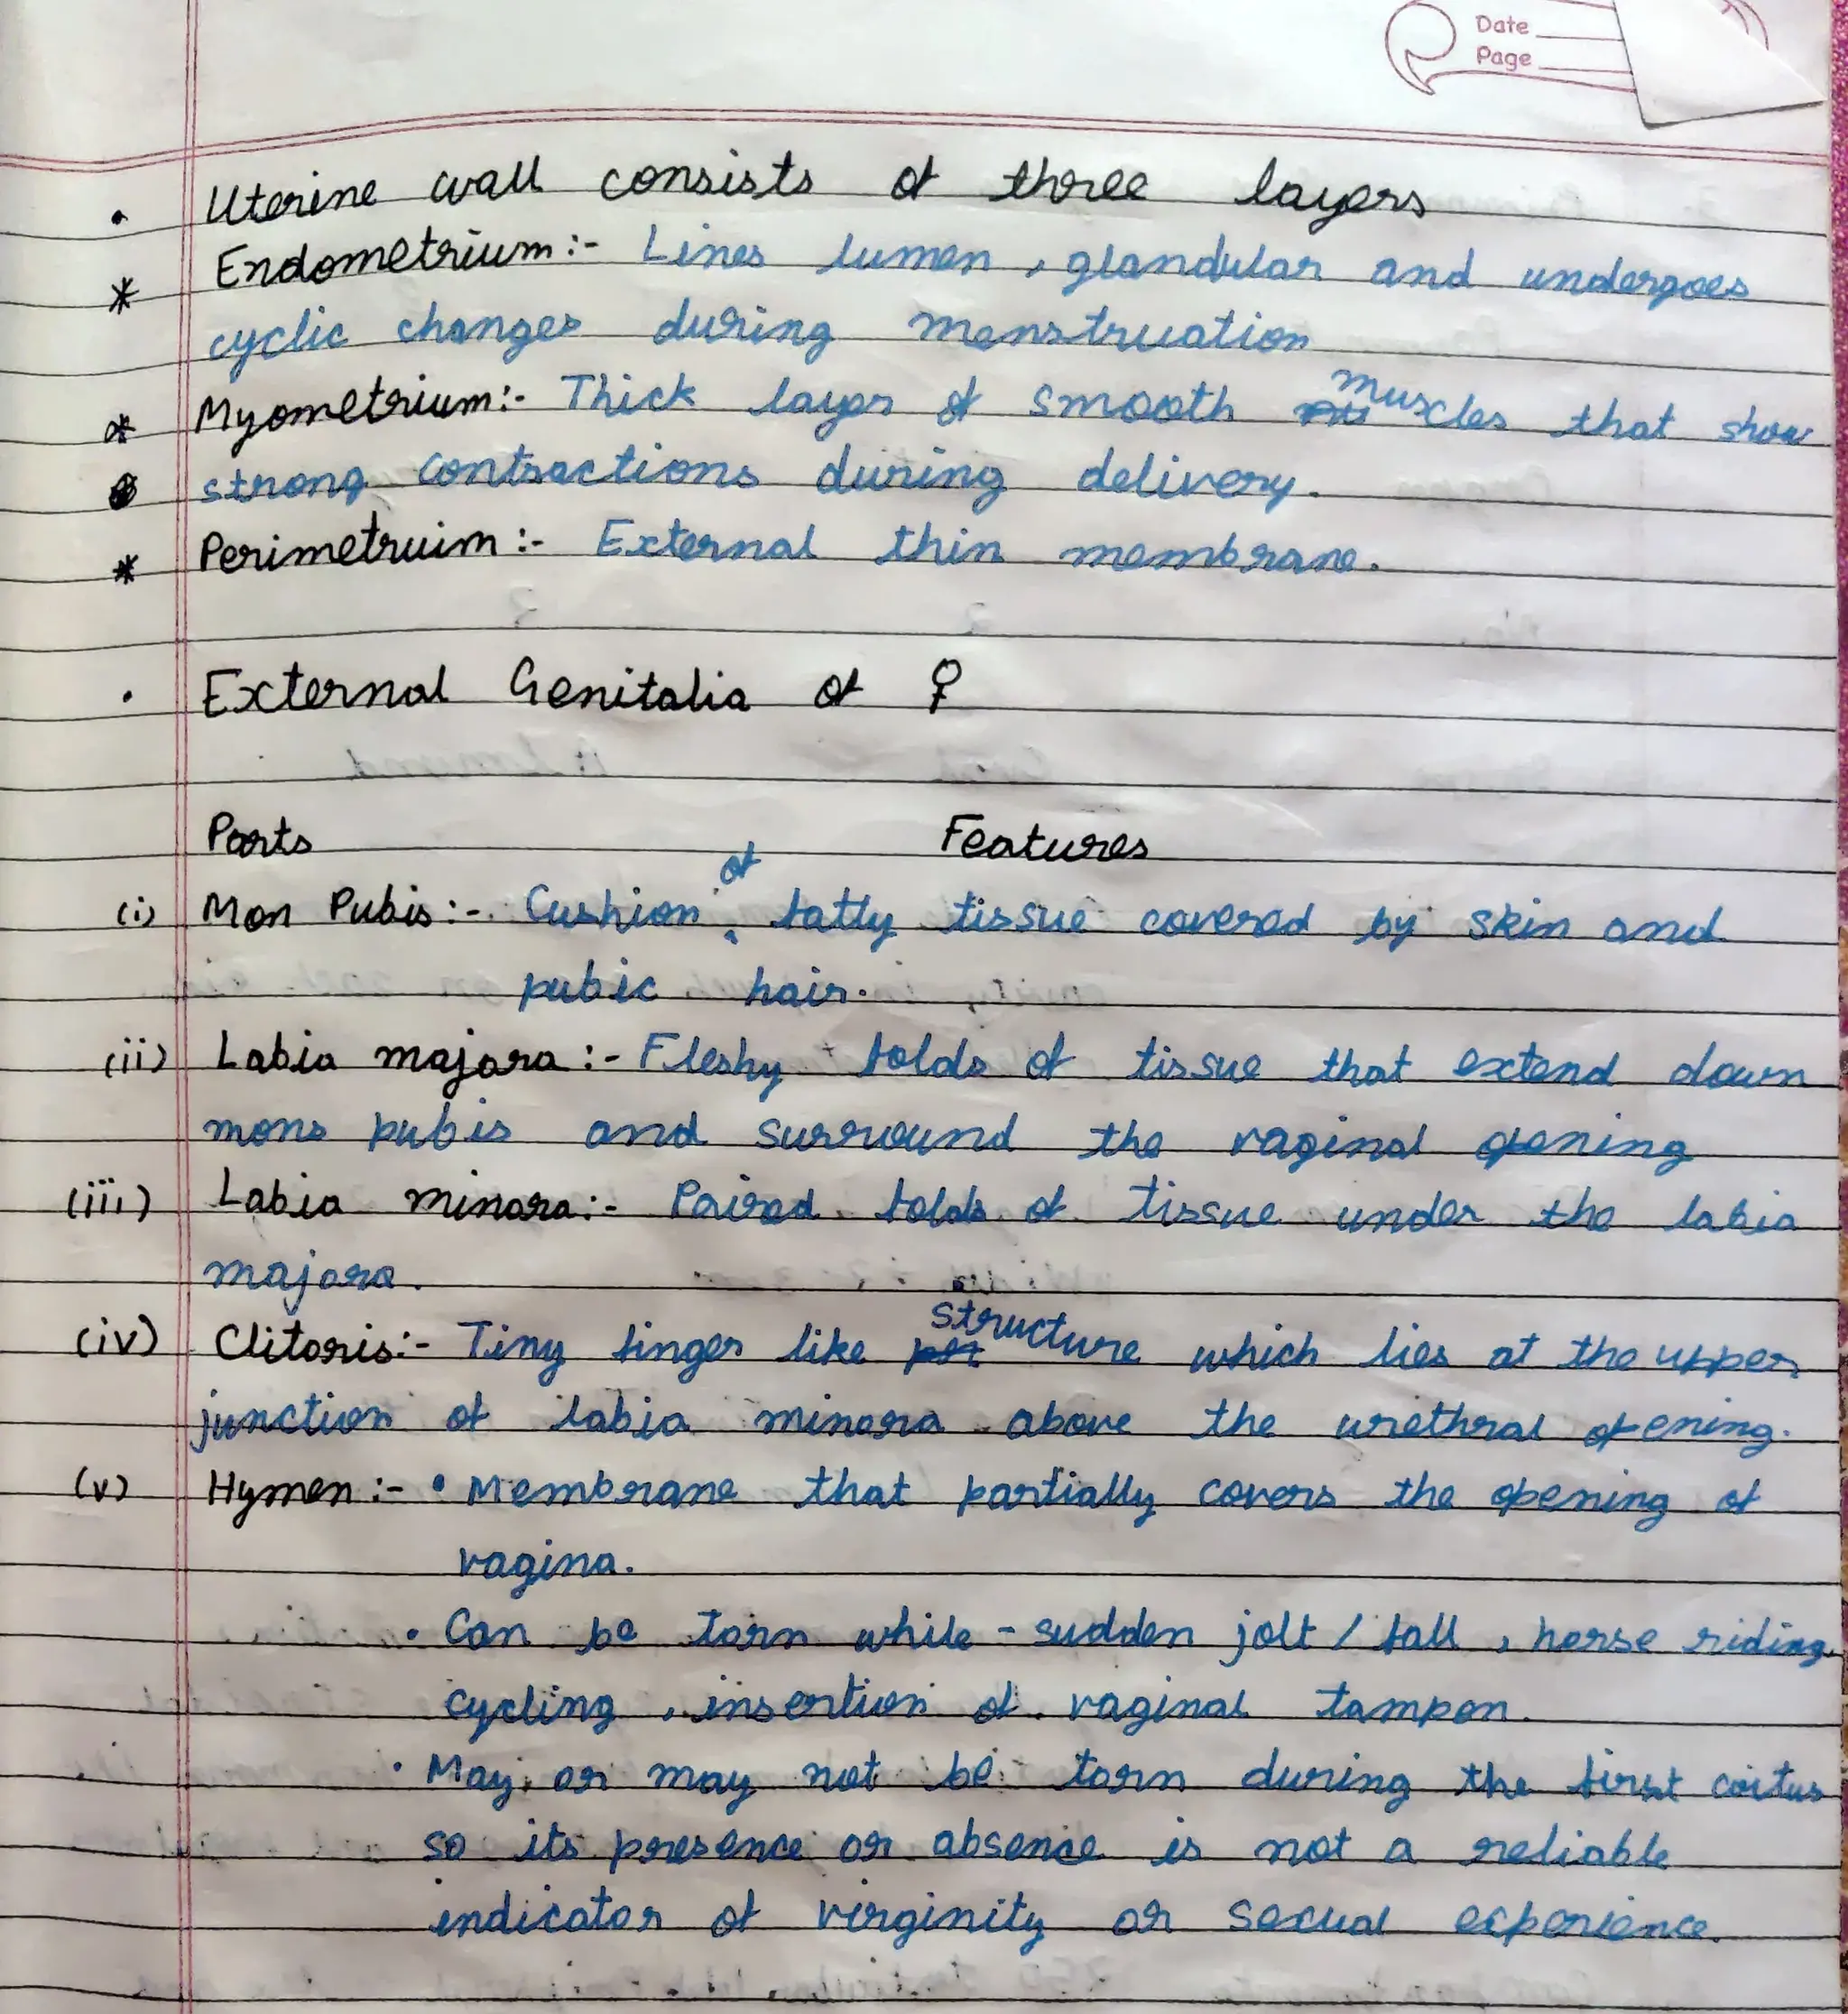 Date
Page
• Uterine wall consists of three layers
* Endometrium:- Lines lumen, glandular and undergoes
cyclic changes during menstruation
* Myometrium:- Thick layer of smooth muscles that show
strong contractions during delivery.
* Perimetruim:- External thin membrane.
• External Genitalia of ♀
Parts Features
(i) Mon Pubis:- Cushion of fatty tissue covered by skin and
pubic hair.
(ii) Labia majora:- Fleshy folds of tissue that extend down
mons pubis and surround the vaginal opening
(iii) Labia minora:- Paired folds of tissue under the labia
majora.
(iv) Clitoris:- Tiny finger like structure which lies at the upper
junction of labia minora above the urethral opening.
(v) Hymen:- • Membrane that partially covers the opening of
vagina.
• Can be torn while - sudden jolt / fall, horse riding,
cycling, insertion of vaginal tampon.
• May or may not be torn during the first coitus
so its presence or absence is not a reliable
indicator of virginity or sexual experience.